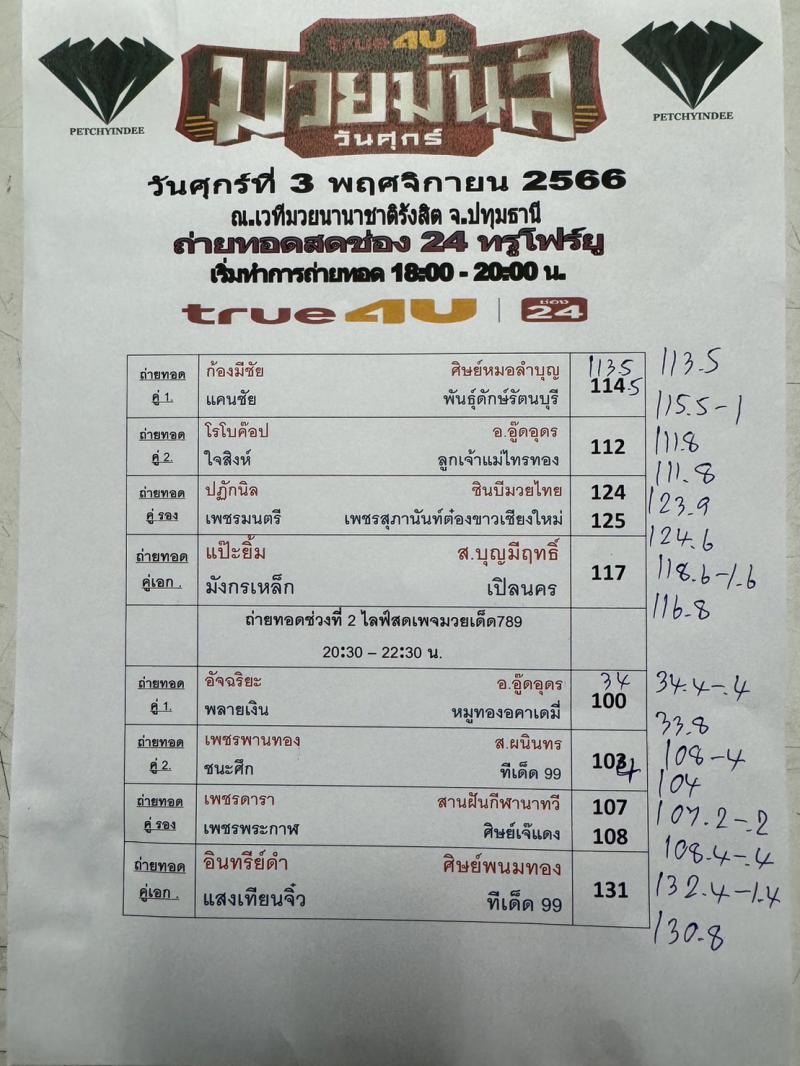 true4U
มวยมันส์
วันศุกร์
PETCHYINDEE
PETCHYINDEE
วันศุกร์ที่ 3 พฤศจิกายน 2566
ณ.เวทีมวยนานาชาติรังสิต จ.ปทุมธานี
ถ่ายทอดสดช่อง 24 ทรูโฟร์ยู
เริ่มทำการถ่ายทอด 18:00 - 20:00 น.
true4U | ช่อง 24
ถ่ายทอด ก้องมีชัย ศิษย์หมอลำบุญ 113.5 113.5
คู่ 1. แคนชัย พันธุ์ดักษ์รัตนบุรี 114.5 115.5-1
ถ่ายทอด โรโบค๊อป อ.อู๊ดอุดร 112 111.8
คู่ 2. ใจสิงห์ ลูกเจ้าแม่ไทรทอง 111.8
ถ่ายทอด ปฏักนิล ชินบีมวยไทย 124 123.9
คู่ รอง เพชรมนตรี เพชรสุภานันท์ต๋องขาวเชียงใหม่ 125 124.6
ถ่ายทอด แป๊ะยิ้ม ส.บุญมีฤทธิ์ 117 118.6-1.6
คู่เอก . มังกรเหล็ก เปิลนคร 116.8
ถ่ายทอดช่วงที่ 2 ไลฟ์สดเพจมวยเด็ด789
20:30 – 22:30 น.
ถ่ายทอด อัจฉริยะ อ.อู๊ดอุดร 34 34.4-.4
คู่ 1. พลายเงิน หมูทองอคาเดมี่ 100 33.8
ถ่ายทอด เพชรพานทอง ส.ผนินทร 108-4
คู่ 2. ชนะศึก ทีเด็ด 99 103 4 104
ถ่ายทอด เพชรดารา สานฝันกีฬานาทวี 107 107.2-.2
คู่ รอง เพชรพระกาฬ ศิษย์เจ๊แดง 108 108.4-.4
ถ่ายทอด อินทรีย์ดำ ศิษย์พนมทอง 131 132.4-1.4
คู่เอก . แสงเทียนจิ๋ว ทีเด็ด 99 130.8